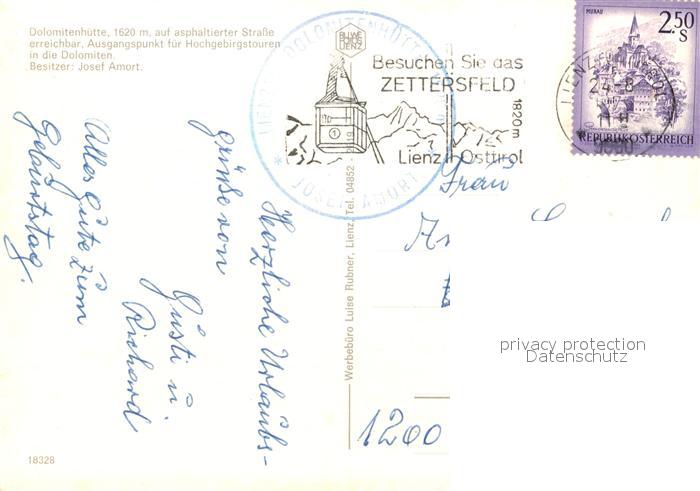 Dolomitenhütte, 1620 m, auf asphaltierter Straße
erreichbar, Ausgangspunkt für Hochgebirgstouren
in die Dolomiten.
Besitzer: Josef Amort.
DOLOMITENHÜTTE
JOSEF AMORT
LIENZ
Besuchen Sie das
ZETTERSFELD
1820 m
Lienz Osttirol
1
MURAU
2.50
S
REPUBLIK ÖSTERREICH
LIENZ
Alles Gute zum
Geburtstag.
Herzliche Urlaubs-
grüße von
Gusti u.
Richard
Werbebüro Luise Rubner, Lienz, Tel. 04852-
Frau
1200
privacy protection
Datenschutz
18328